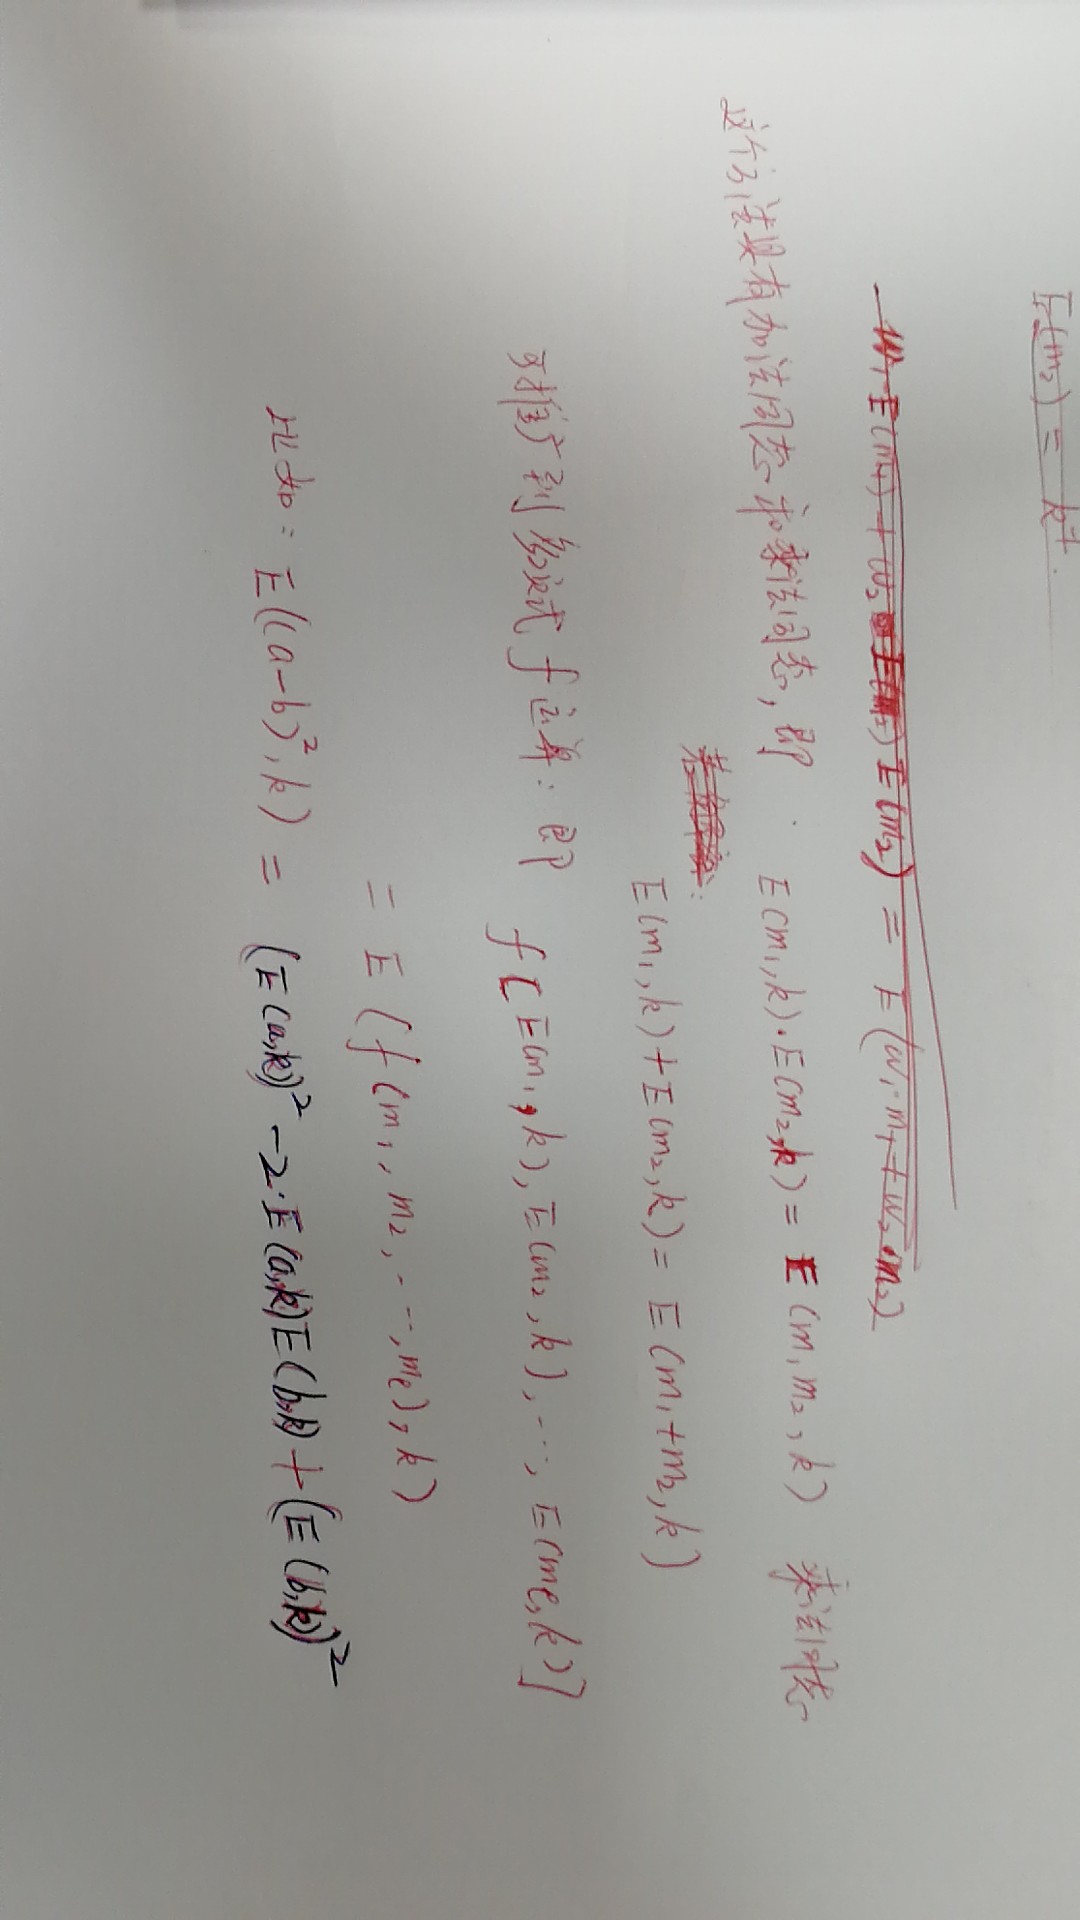 E(m₂) = k⁺.
w₁·E(m₁) + w₂ E(m₂) = E(w₁·m₁ + w₂·m₂)
这个方法具有加法同态和乘法同态,即. E(m₁,k)·E(m₂,k) = E(m₁m₂,k) 乘法同态
E(m₁,k)+E(m₂,k) = E(m₁+m₂,k)
可推广到多项式f运算:即 f[E(m₁,k), E(m₂,k), ..., E(mℓ,k)]
= E(f(m₁,m₂,...,mℓ),k)
比如: E((a-b)²,k) = (E(a,k))² - 2·E(a,k)E(b,k) + (E(b,k))²